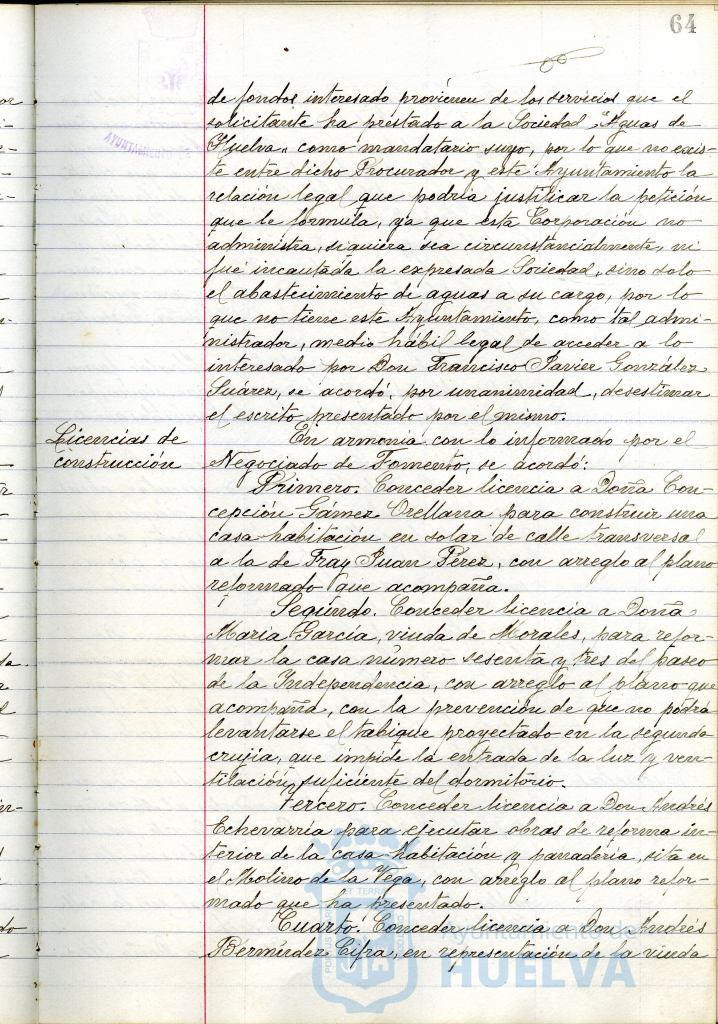 64
de fondos interesado provienen de los servicios que el
solicitante ha prestado a la Sociedad "Aguas de
Huelva" como mandatario suyo, por lo que no exis-
te entre dicho Procurador y este Ayuntamiento la
relación legal que podría justificar la petición
que le formula, ya que esta Corporación no
administra, siquiera sea circunstancialmente, ni
fué incautada la expresada Sociedad, sino solo
el abastecimiento de aguas a su cargo, por lo
que no tiene este Ayuntamiento, como tal admi-
nistrador, medio hábil legal de acceder a lo
interesado por Don Francisco Javier González
Suárez, se acordó, por unanimidad, desestimar
el escrito presentado por el mismo.
Licencias de
construcción
En armonía con lo informado por el
Negociado de Fomento, se acordó:
Primero. Conceder licencia a Doña Con-
cepción Gámez Orellana para construir una
casa-habitación en solar de calle transversal
a la de Fray Juan Pérez, con arreglo al plano
reformado que acompaña.
Segúndo. Conceder licencia a Doña
María García, viuda de Morales, para refor-
mar la casa número sesenta y tres del paseo
de la Independencia, con arreglo al plano que
acompaña, con la prevención de que no podrá
levantarse el tabique proyectado en la segunda
crujía, que impide la entrada de la luz y ven-
tilación suficiente del dormitorio.
Tercero. Conceder licencia a Don Andrés
Echevarría para ejecutar obras de reforma in-
terior de la casa-habitación y panadería, sita en
el Molino de la Vega, con arreglo al plano refor-
mado que ha presentado.
Cuarto. Conceder licencia a Don Andrés
Bermúdez Cifra, en representación de la viuda
Ayuntamiento de
HUELVA